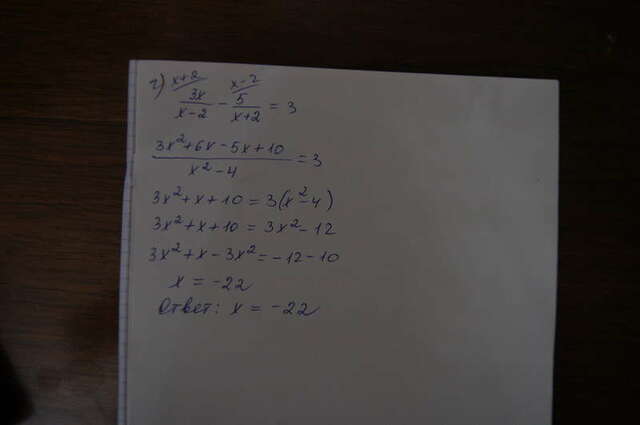 г) x+2/ x-2/
3x/x-2 - 5/x+2 = 3
3x²+6x-5x+10/x²-4 = 3
3x²+x+10 = 3(x²-4)
3x²+x+10 = 3x²-12
3x²+x-3x² = -12-10
x = -22
Ответ: x = -22